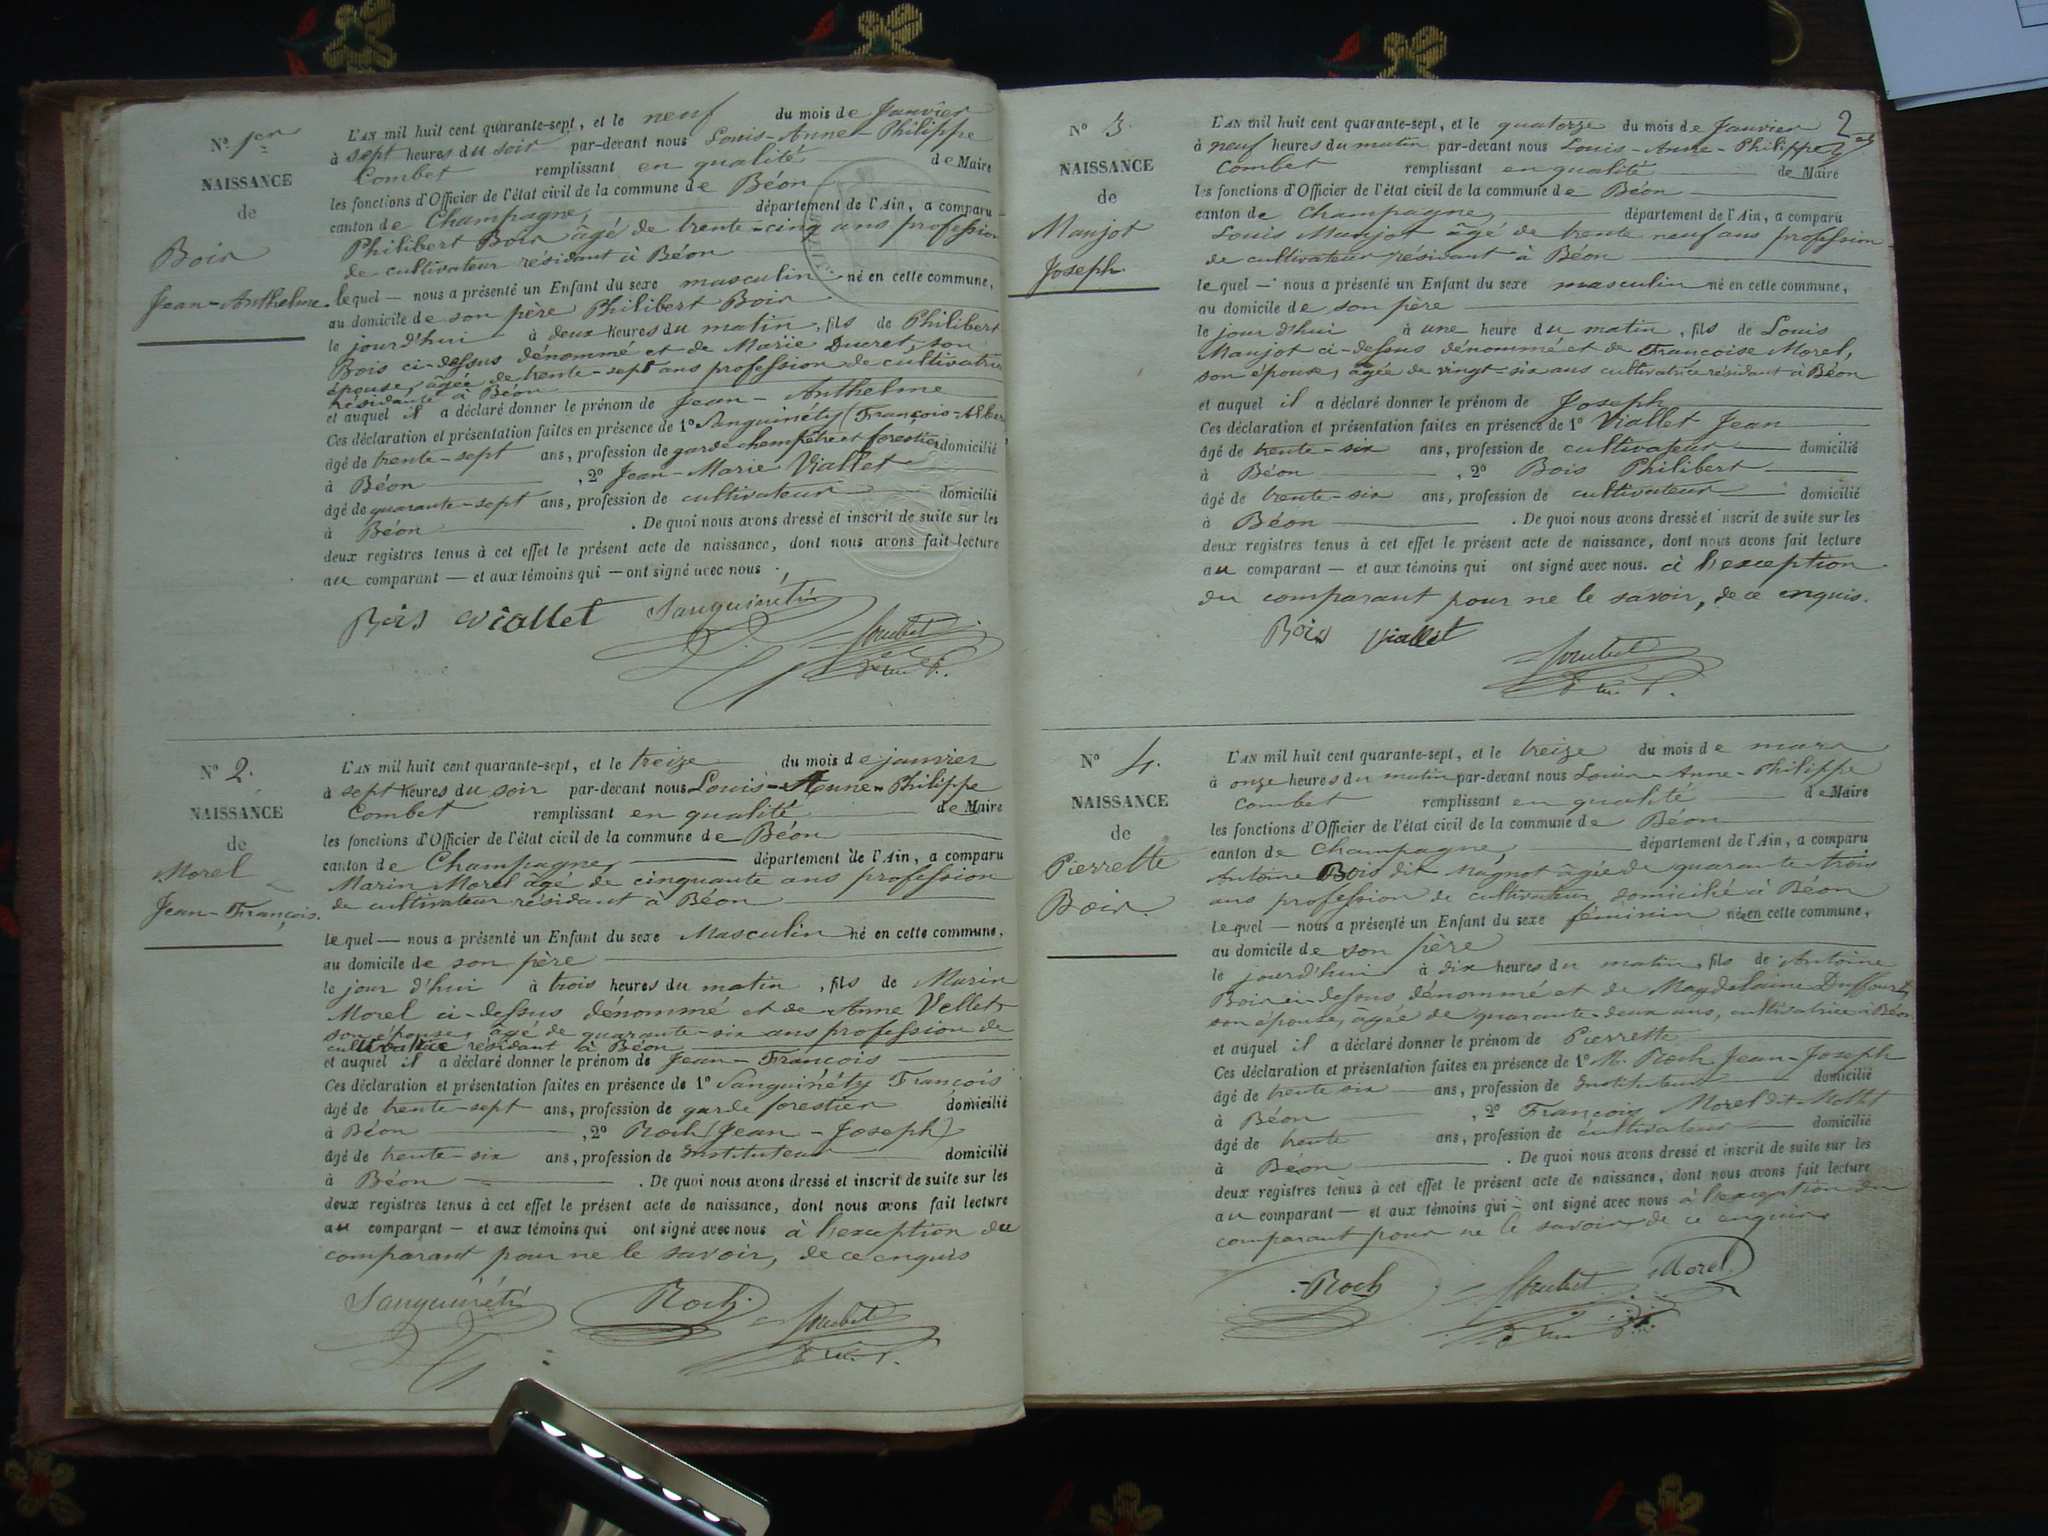 N° 1er
NAISSANCE
de
Bois
Jean-Anthelme
L'AN mil huit cent quarante-sept, et le neuf du mois de Janvier
à sept heures du soir par-devant nous Louis-Anne-Philippe
Combet remplissant en qualité de Maire
les fonctions d'Officier de l'état civil de la commune de Béon
canton de Champagne, département de l'Ain, a comparu
Philibert Bois âgé de trente-cinq ans profession
de cultivateur résidant à Béon
lequel — nous a présenté un Enfant du sexe masculin né en cette commune,
au domicile de son père Philibert Bois
le jourd'hui à deux heures du matin, fils de Philibert
Bois ci-dessus dénommé et de Marie Ducret, son
épouse, âgée de trente-sept ans profession de cultivatrice
résidante à Béon
et auquel il a déclaré donner le prénom de Jean-Anthelme
Ces déclaration et présentation faites en présence de 1° Sanguinéty (François-
âgé de trente-sept ans, profession de garde champêtre et forestier domicilié
à Béon , 2° Jean-Marie Viallet
âgé de quarante-sept ans, profession de cultivateur domicilié
à Béon . De quoi nous avons dressé et inscrit de suite sur les
deux registres tenus à cet effet le présent acte de naissance, dont nous avons fait lecture
au comparant — et aux témoins qui — ont signé avec nous.
Bois Viallet Sanguinéti Combet
N° 2.
NAISSANCE
de
Morel
Jean-François.
L'AN mil huit cent quarante-sept, et le treize du mois de janvier
à sept heures du soir par-devant nous Louis-Anne-Philippe
Combet remplissant en qualité de Maire
les fonctions d'Officier de l'état civil de la commune de Béon
canton de Champagne, département de l'Ain, a comparu
Marin Morel âgé de cinquante ans profession
de cultivateur résidant à Béon
lequel — nous a présenté un Enfant du sexe Masculin né en cette commune,
au domicile de son père
le jour d'hui à trois heures du matin, fils de Marin
Morel ci-dessus dénommé et de Anne Vellet
son épouse, âgé de quarante-six ans profession de
cultivatrice résidant à Béon
et auquel il a déclaré donner le prénom de Jean-François
Ces déclaration et présentation faites en présence de 1° Sanguinéty François
âgé de trente-sept ans, profession de garde forestier domicilié
à Béon , 2° Roch (Jean-Joseph)
âgé de trente-six ans, profession de Instituteur domicilié
à Béon . De quoi nous avons dressé et inscrit de suite sur les
deux registres tenus à cet effet le présent acte de naissance, dont nous avons fait lecture
au comparant — et aux témoins qui ont signé avec nous à l'exception du
comparant pour ne le savoir, de ce enquis
Sanguinéti Roch Combet
2
N° 3.
NAISSANCE
de
Maujot
Joseph.
L'AN mil huit cent quarante-sept, et le quatorze du mois de Janvier
à neuf heures du matin par-devant nous Louis-Anne-Philippe
Combet remplissant en qualité de Maire
les fonctions d'Officier de l'état civil de la commune de Béon
canton de Champagne, département de l'Ain, a comparu
Louis Maujot âgé de trente neuf ans profession
de cultivateur résidant à Béon
lequel — nous a présenté un Enfant du sexe masculin né en cette commune,
au domicile de son père
le jour d'hui à une heure du matin, fils de Louis
Maujot ci-dessus dénommé et de Françoise Morel,
son épouse, âgée de vingt-six ans cultivatrice résidant à Béon
et auquel il a déclaré donner le prénom de Joseph
Ces déclaration et présentation faites en présence de 1° Viallet Jean
âgé de trente-six ans, profession de cultivateur domicilié
à Béon , 2° Bois Philibert
âgé de trente-six ans, profession de cultivateur domicilié
à Béon . De quoi nous avons dressé et inscrit de suite sur les
deux registres tenus à cet effet le présent acte de naissance, dont nous avons fait lecture
au comparant — et aux témoins qui ont signé avec nous. à l'exception
du comparant pour ne le savoir, de ce enquis.
Bois Viallet Combet
N° 4.
NAISSANCE
de
Pierrette
Bois.
L'AN mil huit cent quarante-sept, et le treize du mois de mars
à onze heures du matin par-devant nous Louis-Anne-Philippe
Combet remplissant en qualité de Maire
les fonctions d'Officier de l'état civil de la commune de Béon
canton de Champagne, département de l'Ain, a comparu
Antoine Bois dit Magnot âgée de quarante-trois
ans profession de cultivateur domicilié à Béon
lequel — nous a présenté un Enfant du sexe féminin née en cette commune,
au domicile de son père
le jourd'hui à dix heures du matin, fils de Antoine
Bois ci-dessus dénommé et de Magdelaine Duffourt,
son épouse, âgée de quarante-deux ans, cultivatrice à Béon
et auquel il a déclaré donner le prénom de Pierrette
Ces déclaration et présentation faites en présence de 1° M. Roch Jean-Joseph
âgé de trente six ans, profession de Instituteur domicilié
à Béon , 2° François Morel dit Mollet
âgé de trente ans, profession de cultivateur domicilié
à Béon . De quoi nous avons dressé et inscrit de suite sur les
deux registres tenus à cet effet le présent acte de naissance, dont nous avons fait lecture
au comparant — et aux témoins qui — ont signé avec nous à l'exception du
comparant pour ne le savoir de ce enquis
Roch Combet Morel